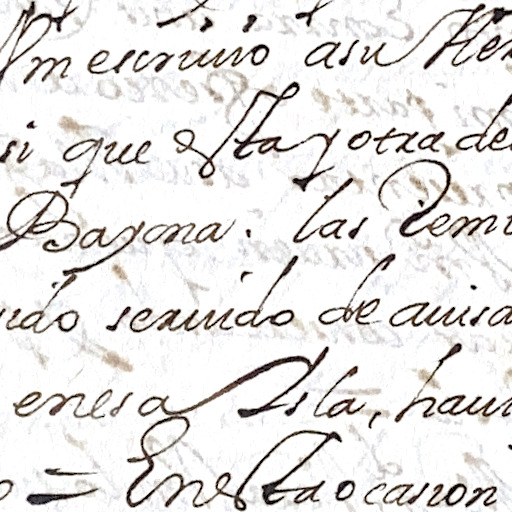 Vm escriuio asu Her
si que esta y otra de
Bayona. las Remi
uido seruido de auisa
enesa Isla, hauie
o = En esta ocasion